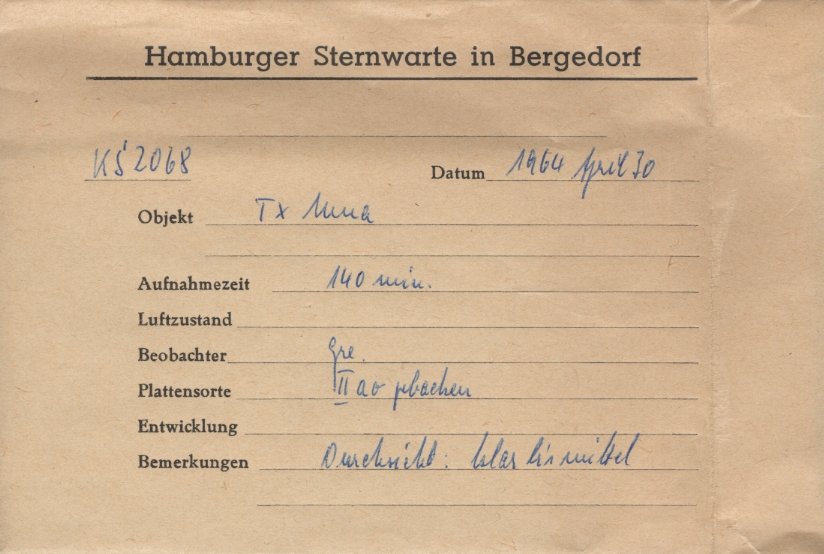 Hamburger Sternwarte in Bergedorf
KS 2068 Datum 1964 April 30
Objekt Tx Umа
Aufnahmezeit 140 min.
Luftzustand
Beobachter Gre.
Plattensorte II ao gebacken
Entwicklung
Bemerkungen Durchsicht: klar bis mittel